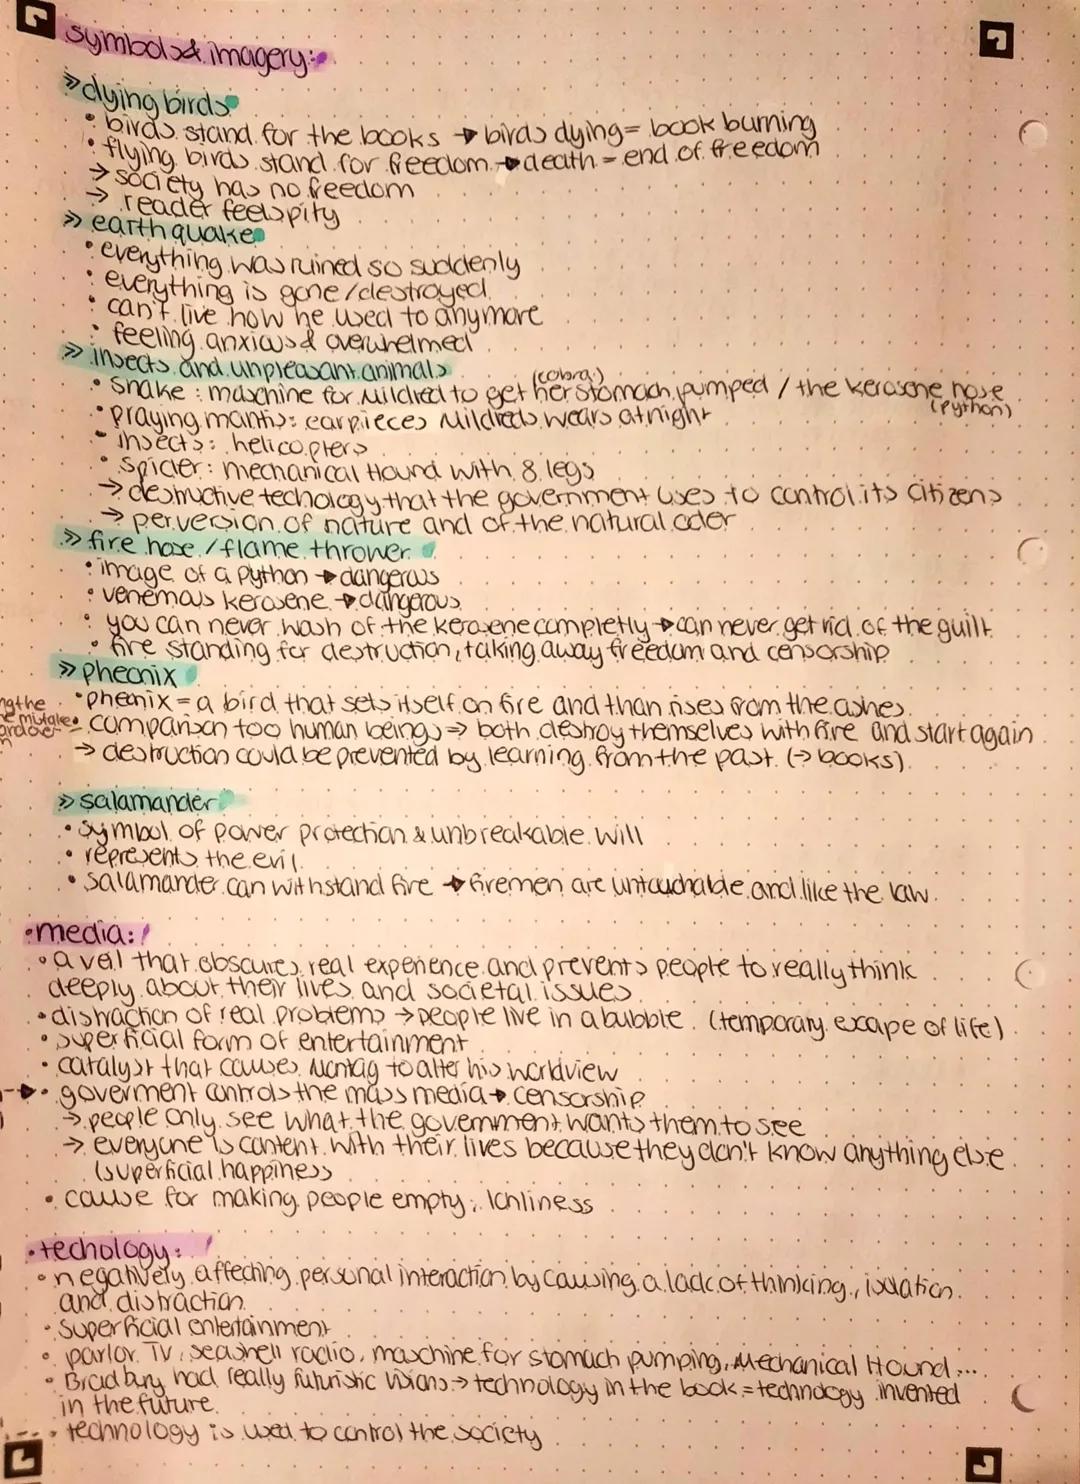 symbols & imagery:
» dying birds
• birds stand for the books → birds dying = book burning
• flying birds stand for freedom → death = end of freedom
→ society has no freedom
→ reader feels pity
» earthquake
• everything was ruined so suddenly
• everything is gone/destroyed
• can't live how he used to anymore
• feeling anxious & overwhelmed
» insects and unpleasant animals
(cobra)
• snake: maschine for Mildred to get her stomach pumped / the kerosene hose
(python)
• praying mantis: earpieces Mildreds wears at night
• insects: helicopters
• spider: mechanical Hound with 8 legs
→ destructive techology that the government uses to control its citizens
→ perversion of nature and of the natural oder
» fire hose / flame thrower
• image of a python → dangerous
• venemous kerosene → dangerous
• you can never wash of the kerosene completly → can never get rid of the guilt
• fire standing for destruction, taking away freedom and censorship
» pheonix
• pheonix = a bird that sets itself on fire and than rises from the ashes
• comparison too human beings => both destroy themselves with fire and start again
→ destruction could be prevented by learning from the past (→ books)
» salamander
• symbol of power protection & unbreakable will
• represents the evil
• salamander can withstand fire → firemen are untouchable and like the law
• media:
• a veil that obscures real experience and prevents people to really think
deeply about their lives and societal issues
• distraction of real problems → people live in a bubble (temporary excape of life)
• superficial form of entertainment
• catalyst that causes Montag to alter his worldview
• goverment controls the mass media → censorship
→ people only see what the government wants them to see
→ everyone is content with their lives because they don't know anything else
(superficial happiness
• cause for making people empty, lonliness
• techology:
• negatively affecting personal interaction by causing a lack of thinking, isolation
and distraction
• superficial entertainment
• parlor TV, seashell radio, maschine for stomach pumping, Mechanical Hound...
• Bradbury had really futuristic visions → technology in the book = technology invented
in the future
• technology is used to control the society